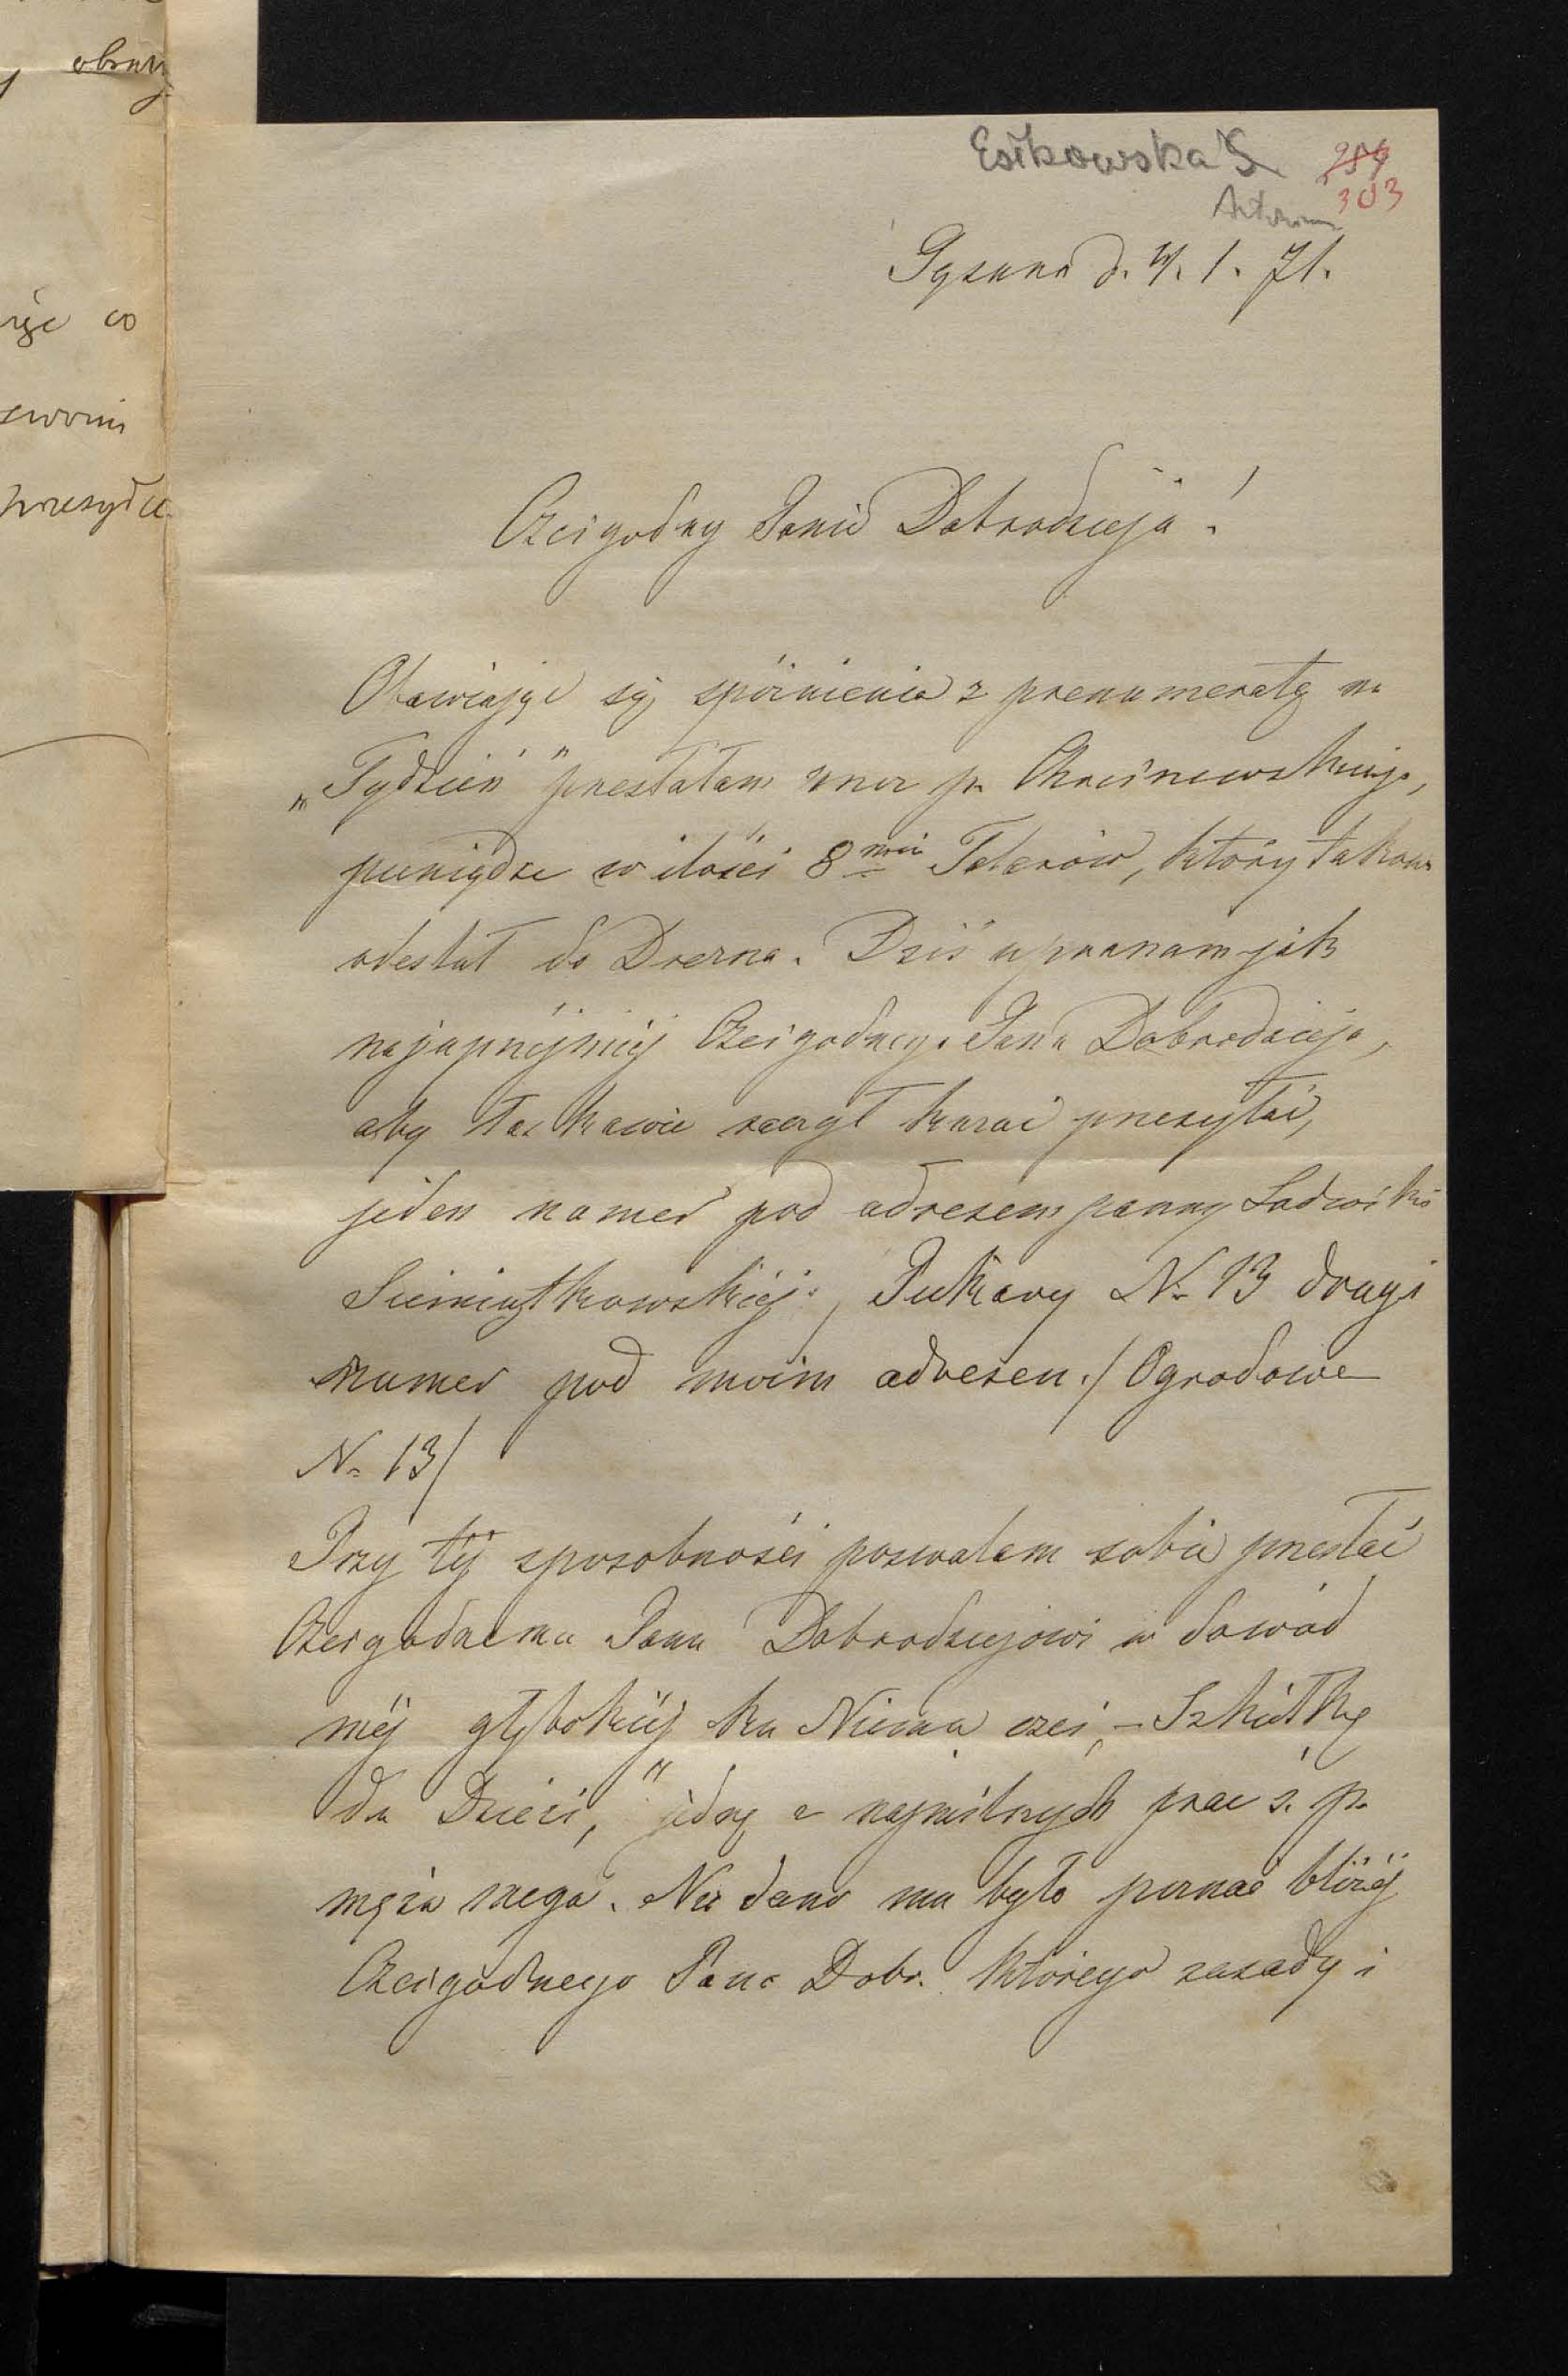 obraz
co
swoim
przesyła
Estkowska S
303
d. 4. 1. 71.
Czcigodny Panie Dobrodzieju!
Obawiając się spóźnienia z prenumeratą na
„Tydzień" przesłałam p.
pieniądze w ilości 8miu Talarów, który takowe
odesłał do Drezna. Dziś upraszam jak
najuprzejmiéj Czcigodnego Pana Dobrodzieja,
aby łaskawie raczył kazać przesyłać,
jeden numer pod adresem panny Ludwiki
Piekary No 13 drugi
numer pod moim adresem. / Ogrodowe
No 13/
Przy téj sposobności pozwalam sobie przesłać
Czcigodnemu Panu Dobrodziejowi w dowód
méj głębokiéj ku Niemu czci, – Szkółkę
dla Dzieci," jedną z najmilszych prac ś. p.
męża mego. Nie dano mu było poznać bliżéj
Czcigodnego Pana Dobr. którego zasady i